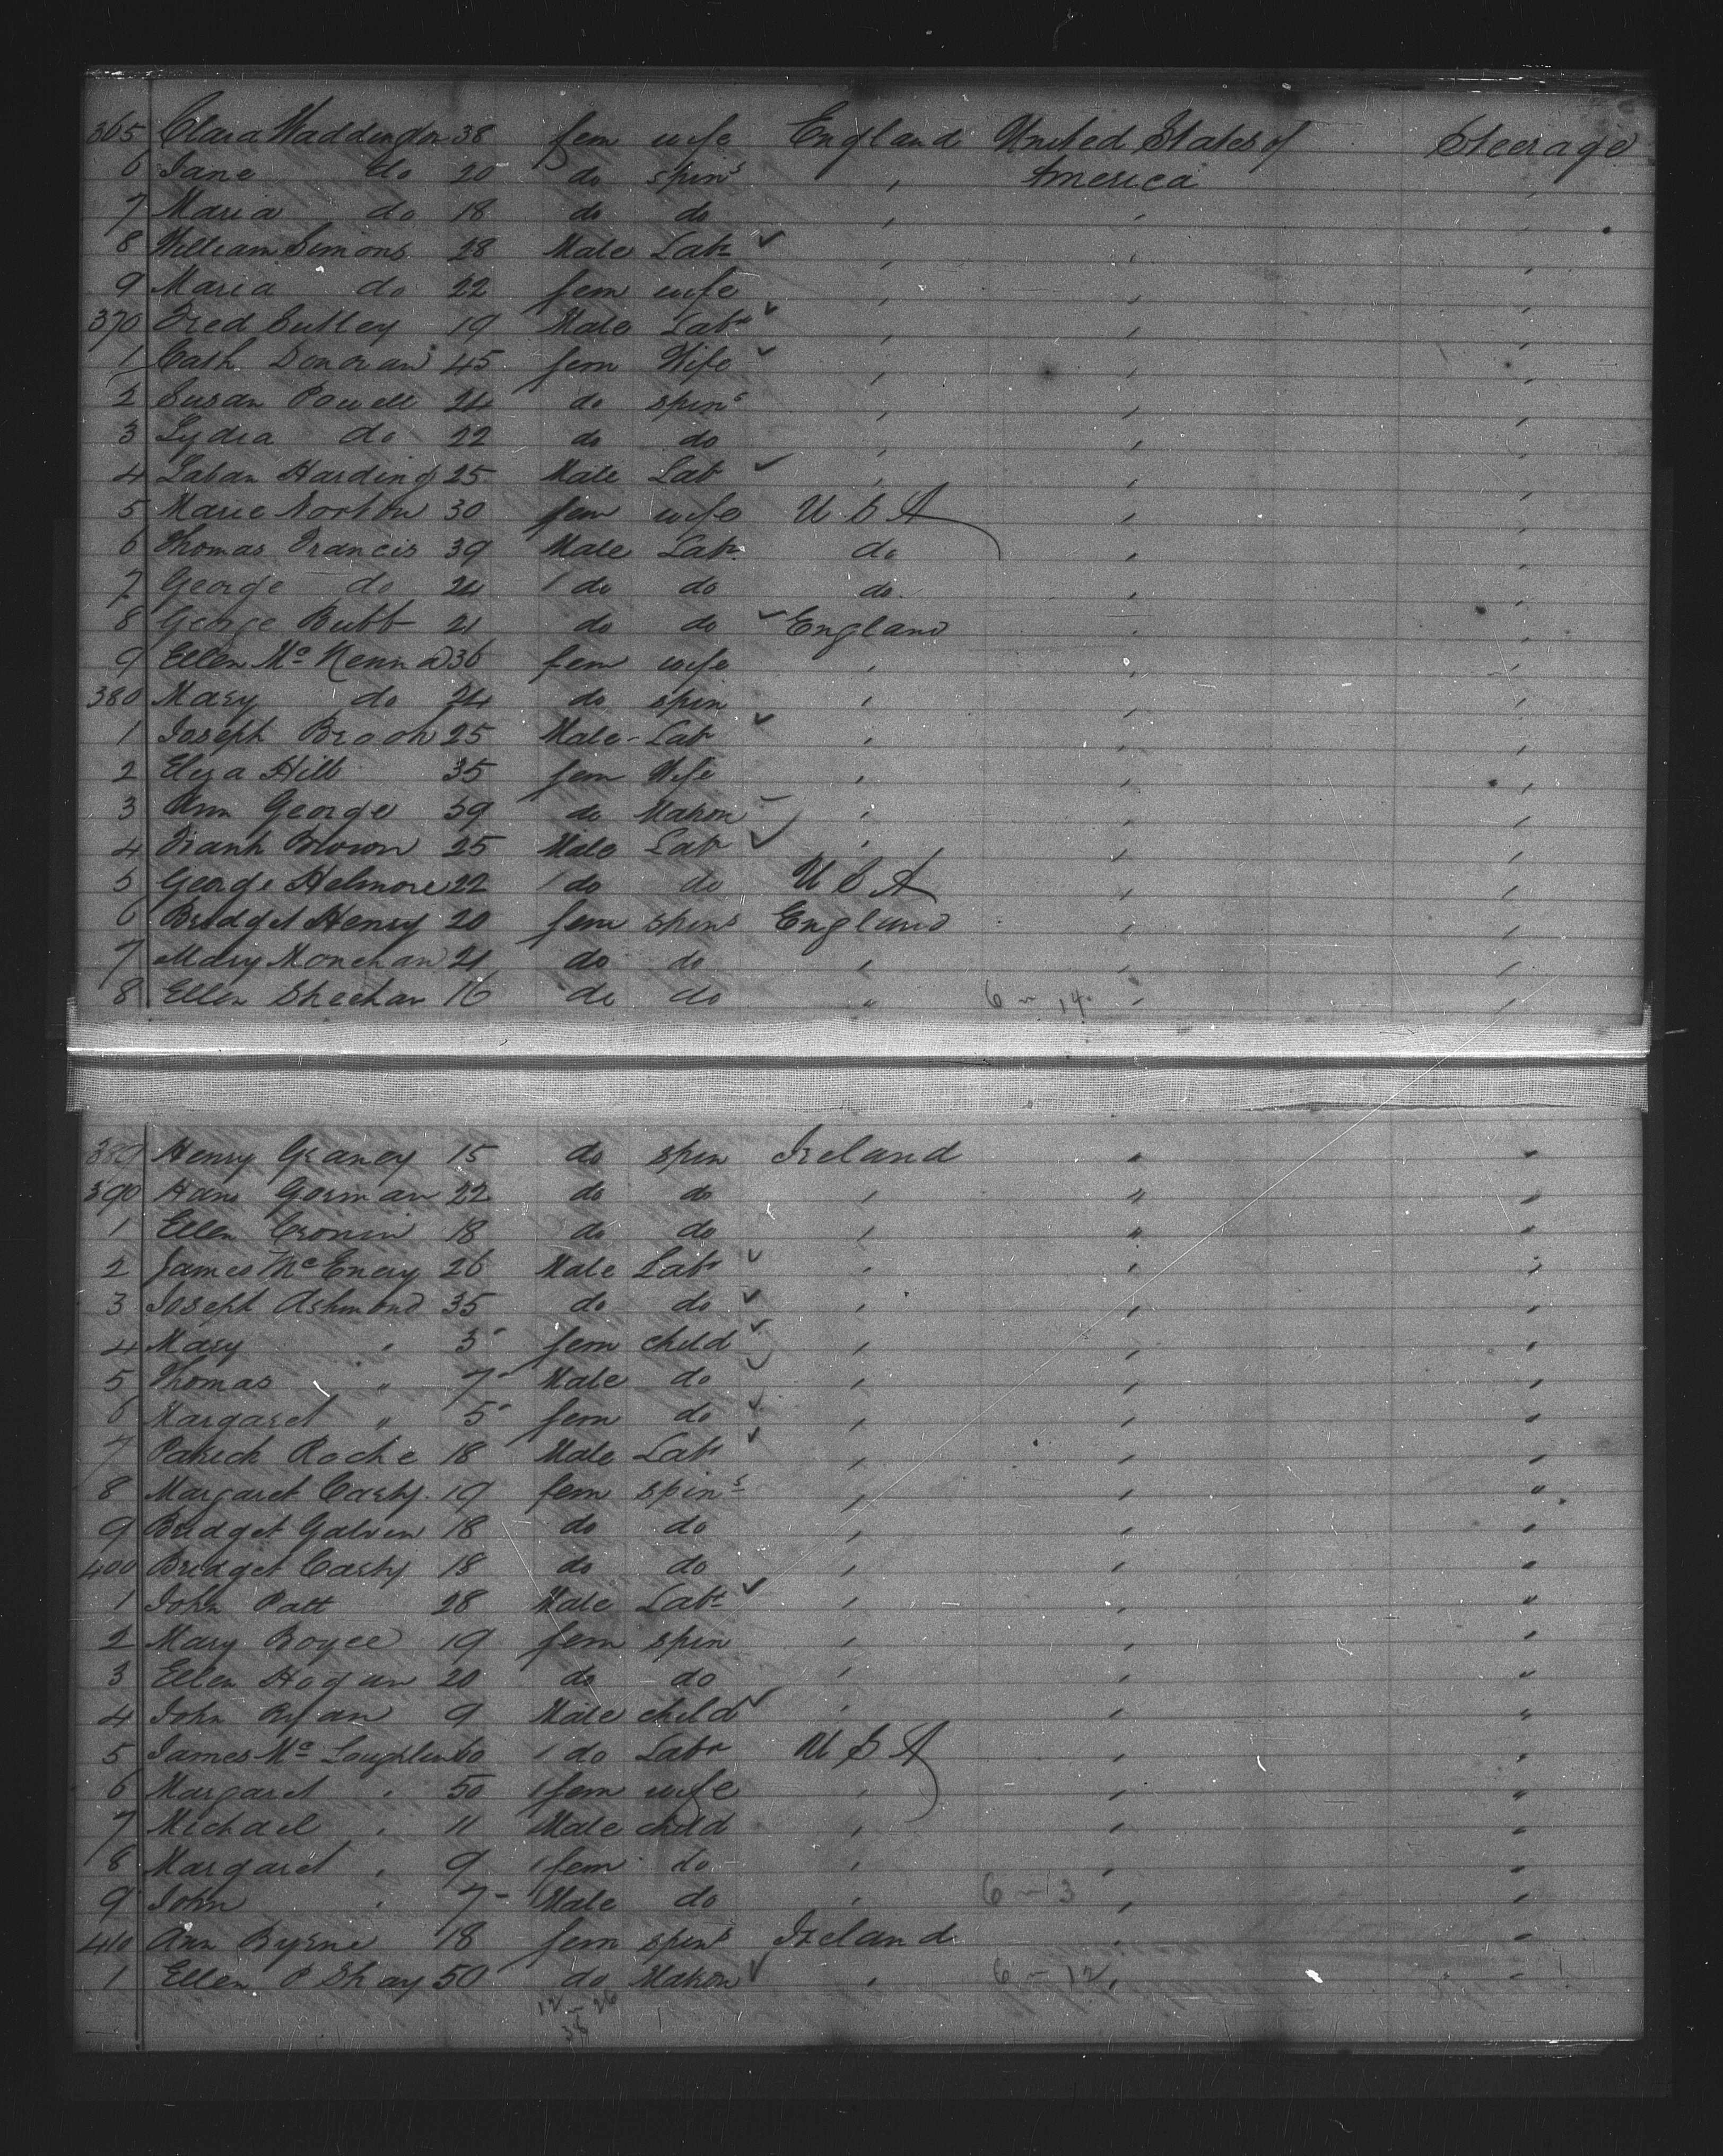 365 Clara Waddington 38 fem wife England United States of Steerage
6 Jane do 20 do spins , America ,
7 Maria do 18 do do , , ,
8 William Simons 28 Male Labr ✓ , , ,
9 Maria do 22 fem wife , , ,
370 Fred Sutley 19 Male Labr ✓ , , ,
1 Cath Donovan 45 fem Wife ✓ , , ,
2 Susan Powell 24 do spins , , ,
3 Lydia do 22 do do , , ,
4 Laban Harding 25 Male Lab ✓ , , ,
5 Marie Norton 30 fem wife U S A , ,
6 Thomas Francis 39 Male Labr do , ,
7 George do 24 / do do do , ,
8 George Butt 21 do do ✓ England , ,
9 Ellen Mc Kenna 36 fem wife , , ,
380 Mary do 24 do spin , , ,
1 Joseph Brook 25 Male Lab ✓ , , ,
2 Eliza Hill 35 fem Wife , , ,
3 Ann George 59 do Matron , , ,
4 Frank Brown 25 Male Lab ✓ , , ,
5 George Helmore 22 / do do U S A , ,
6 Bridget Henry 20 fem spins England , ,
7 Mary Monehan 21 do do , , ,
8 Ellen Sheehan 16 do do " 6 - 14 , ,
389 Henry Graney 15 do spin Ireland " "
390 Hano Gorman 22 do do , " "
1 Ellen Cronin 18 do do , " "
2 James McEnery 26 Male Labr ✓ , , ,
3 Joseph Ashmond 35 do do ✓ , , ,
4 Mary " 3 fem child ✓ , , ,
5 Thomas " 7 Male do ✓ , , ,
6 Margaret " 5 fem do ✓ , , ,
7 Patrick Roche 18 Male Labr ✓ , , ,
8 Margaret Carty 19 fem spins , , "
9 Bridget Galvin 18 do do , , "
400 Bridget Carty 18 do do , , "
1 John Patt 28 Male Labr ✓ , , "
2 Mary Boyce 19 fem spin , , "
3 Ellen Hogan 20 do do , , "
4 John Ryan 9 Male child ✓ , , "
5 James Mc Loughlin 60 / do Labr U S A , "
6 Margaret , 50 / fem wife , , "
7 Michael , 11 Male child , , "
8 Margaret , 9 / fem do , , "
9 John , 7 Male do , 6 - 13 , "
410 Ann Byrne 18 fem spins Ireland , "
1 Ellen O Shay 50 do Matron ✓ , 6 - 12 , "
12 - 26
38